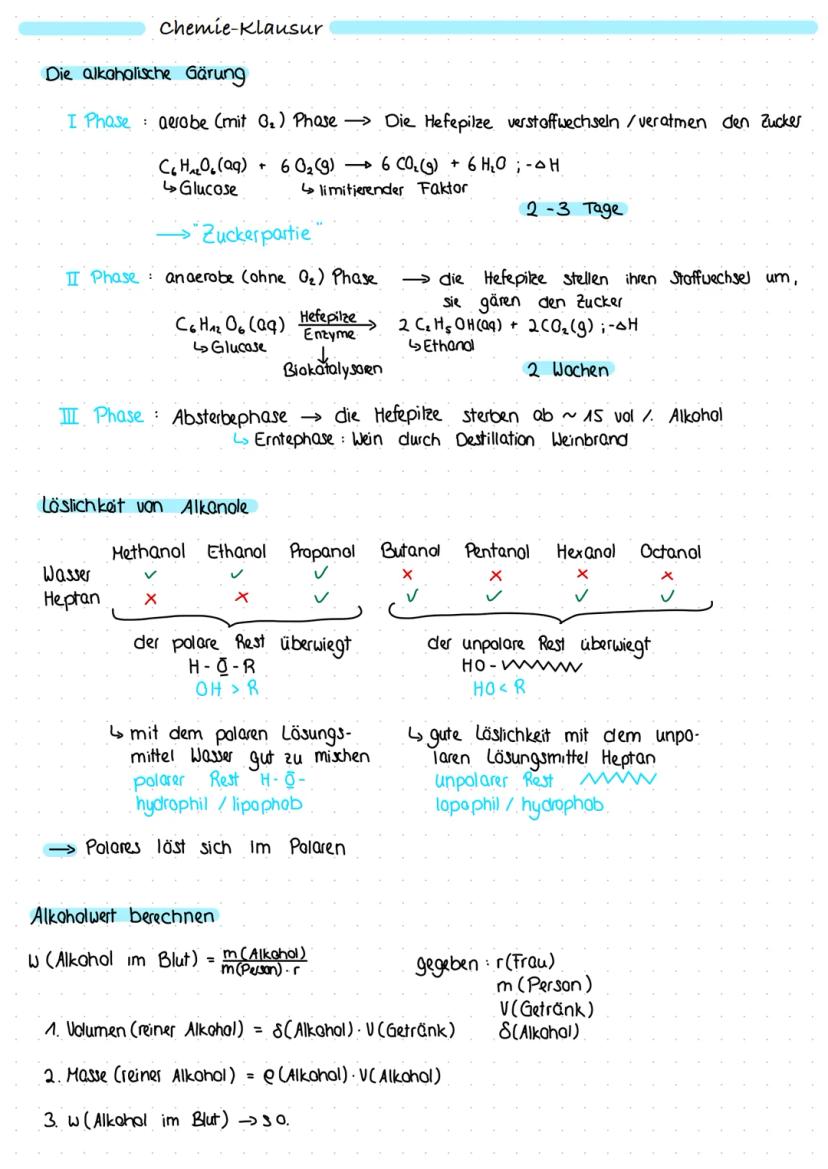 Chemie-Klausur
Die alkoholische Gärung
I Phase : aerobe (mit O₂) Phase → Die Hefepilze verstoffwechseln / veratmen den Zucker
C₆H₁₂O₆(aq) + 6 O₂(g) → 6 CO₂(g) + 6 H₂O ; -ΔH
↳ Glucose ↳ limitierender Faktor
2 - 3 Tage
→ "Zuckerpartie"
II Phase : anaerobe (ohne O₂) Phase → die Hefepilze stellen ihren Stoffwechsel um,
sie gären den Zucker
C₆H₁₂O₆(aq) Hefepilze/Enzyme → 2 C₂H₅OH(aq) + 2 CO₂(g) ; -ΔH
↳ Glucose ↓ ↳ Ethanol
Biokatalysoren 2 Wochen
III Phase : Absterbephase → die Hefepilze sterben ab ~ 15 vol % Alkohol
↳ Erntephase : Wein durch Destillation Weinbrand
Löslichkeit von Alkanole
Methanol Ethanol Propanol Butanol Pentanol Hexanol Octanol
Wasser ✓ ✓ ✓ × × × ×
Heptan × × ✓ ✓ ✓ ✓ ✓
der polare Rest überwiegt der unpolare Rest überwiegt
H - O - R HO -
OH > R HO < R
↳ mit dem polaren Lösungs- ↳ gute Löslichkeit mit dem unpo-
mittel Wasser gut zu mischen laren Lösungsmittel Heptan
polarer Rest H - O - unpolarer Rest
hydrophil / lipophob lopophil / hydrophob
→ Polares löst sich im Polaren
Alkoholwert berechnen
w (Alkohol im Blut) = m(Alkohol) / m(Person) · r gegeben : r(Frau)
m (Person)
V(Getränk)
1. Volumen (reiner Alkohol) = δ(Alkohol) · V(Getränk) δ(Alkohol)
2. Masse (reiner Alkohol) = ϱ (Alkohol) · V(Alkohol)
3. w (Alkohol im Blut) → s.o.